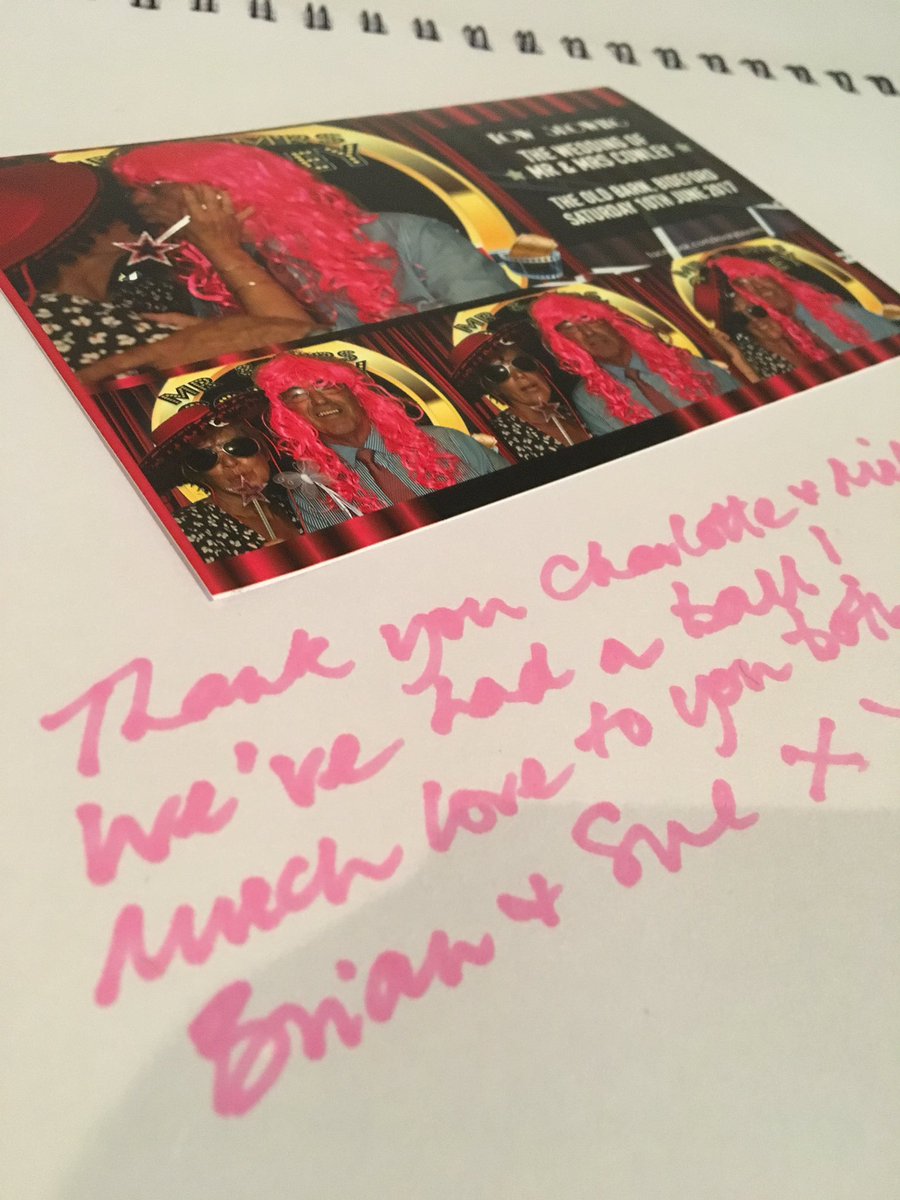 NOW SHOWING
THE WEDDING OF
MR & MRS CONLEY
THE OLD BARN,
SATURDAY 10TH JUNE 2017
MR & MRS
MR &
Thank you Charlotte &
We've had a ball!
Much love to you both
Brian & Sue X